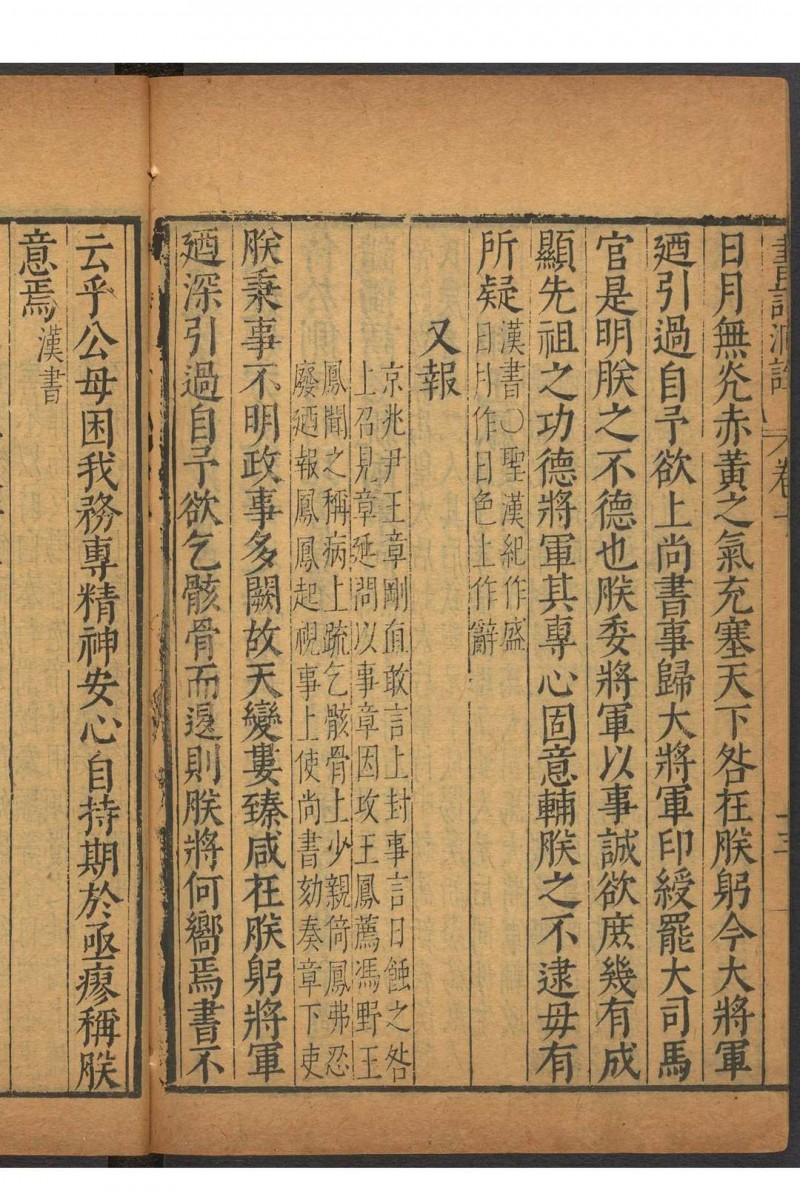 書記洞詮 卷十 十三
日月無光赤黃之氣充塞天下咎在朕躬今大將軍
廼引過自予欲上尚書事歸大將軍印綬罷大司馬
官是明朕之不德也朕委將軍以事誠欲庶幾有成
顯先祖之功德將軍其專心固意輔朕之不逮毋有
所疑
漢書○聖漢紀作盛
日月作日色上作辭
又報
京兆尹王章剛直敢言上封事言日蝕之咎
上召見章延問以事章因攻王鳳薦馮野王
鳳聞之稱病上疏乞骸骨上少親倚鳳弗忍
廢廼報鳳鳳起視事上使尚書劾奏章下吏
朕秉事不明政事多闕故天變婁臻咸在朕躬將軍
廼深引過自予欲乞骸骨而退則朕將何嚮焉書不
云乎公毋困我務專精神安心自持期於亟瘳稱朕
意焉漢書